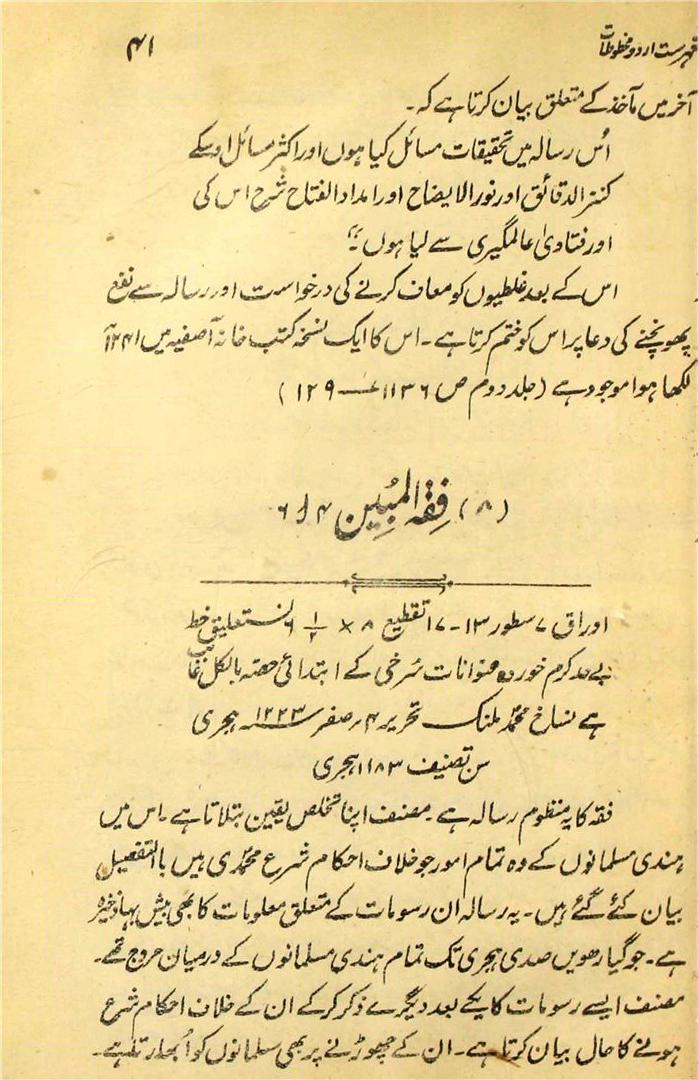 فہرست اردو مخطوطات
۴۱
آخر میں مآخذ کے متعلق بیان کرتا ہے کہ۔
اُس رسالہ میں تحقیقات مسائل کیا ہوں اور اکثر مسائل اوسکے
کنز الدقائق اور نور الایضاح اور امداد الفتاح شرح اس کی
اور فتاویٰ عالمگیری سے لیا ہوں"
اس کے بعد غلطیوں کو معاف کرنے کی درخواست اور رسالہ سے نفع
پھونچنے کی دعا پر اس کو ختم کرتا ہے۔ اس کا ایک نسخہ کتب خانہ آصفیہ میں
لکھا ہوا موجود ہے (جلد دوم ص ۱۱۳۶ — ۱۲۹)
(۸) فِقہ المبُین ۶ ۱۴
اوراق ۷ سطور ۱۳-۱۷ تقطیع ۸ × ۱/۲ ۶ نستعلیق خط
بے حد کرم خوردہ عنوانات سُرخی کے ابتدائی حصّہ بالکل غائب
ہے نساخ محمّد ملنک تحریر ۴ صفر ۱۲۲۳ ہجری
سن تصنیف ۱۱۸۳ ہجری
فقہ کا یہ منظوم رسالہ ہے۔ مصنف اپنا تخلص یقین بتلاتا ہے۔ اس میں
ہندی مسلمانوں کے وہ تمام امور جو خلاف احکام شرع محمّدی ہیں باالتفصیل
بیان کئے گئے ہیں۔ یہ رسالہ ان رسومات کے متعلق معلومات کا بھی بیش بہا ذخیرہ
ہے۔ جو گیارھویں صدی ہجری تک تمام ہندی مسلمانوں کے درمیان مروج تھے۔
مصنف ایسے رسومات کا یکے بعد دیگرے ذکر کرکے ان کے خلاف احکام شرع
ہونے کا حال بیان کرتا ہے۔ ان کے چھوڑنے پر بھی مسلمانوں کو اُبھارتا ہے۔